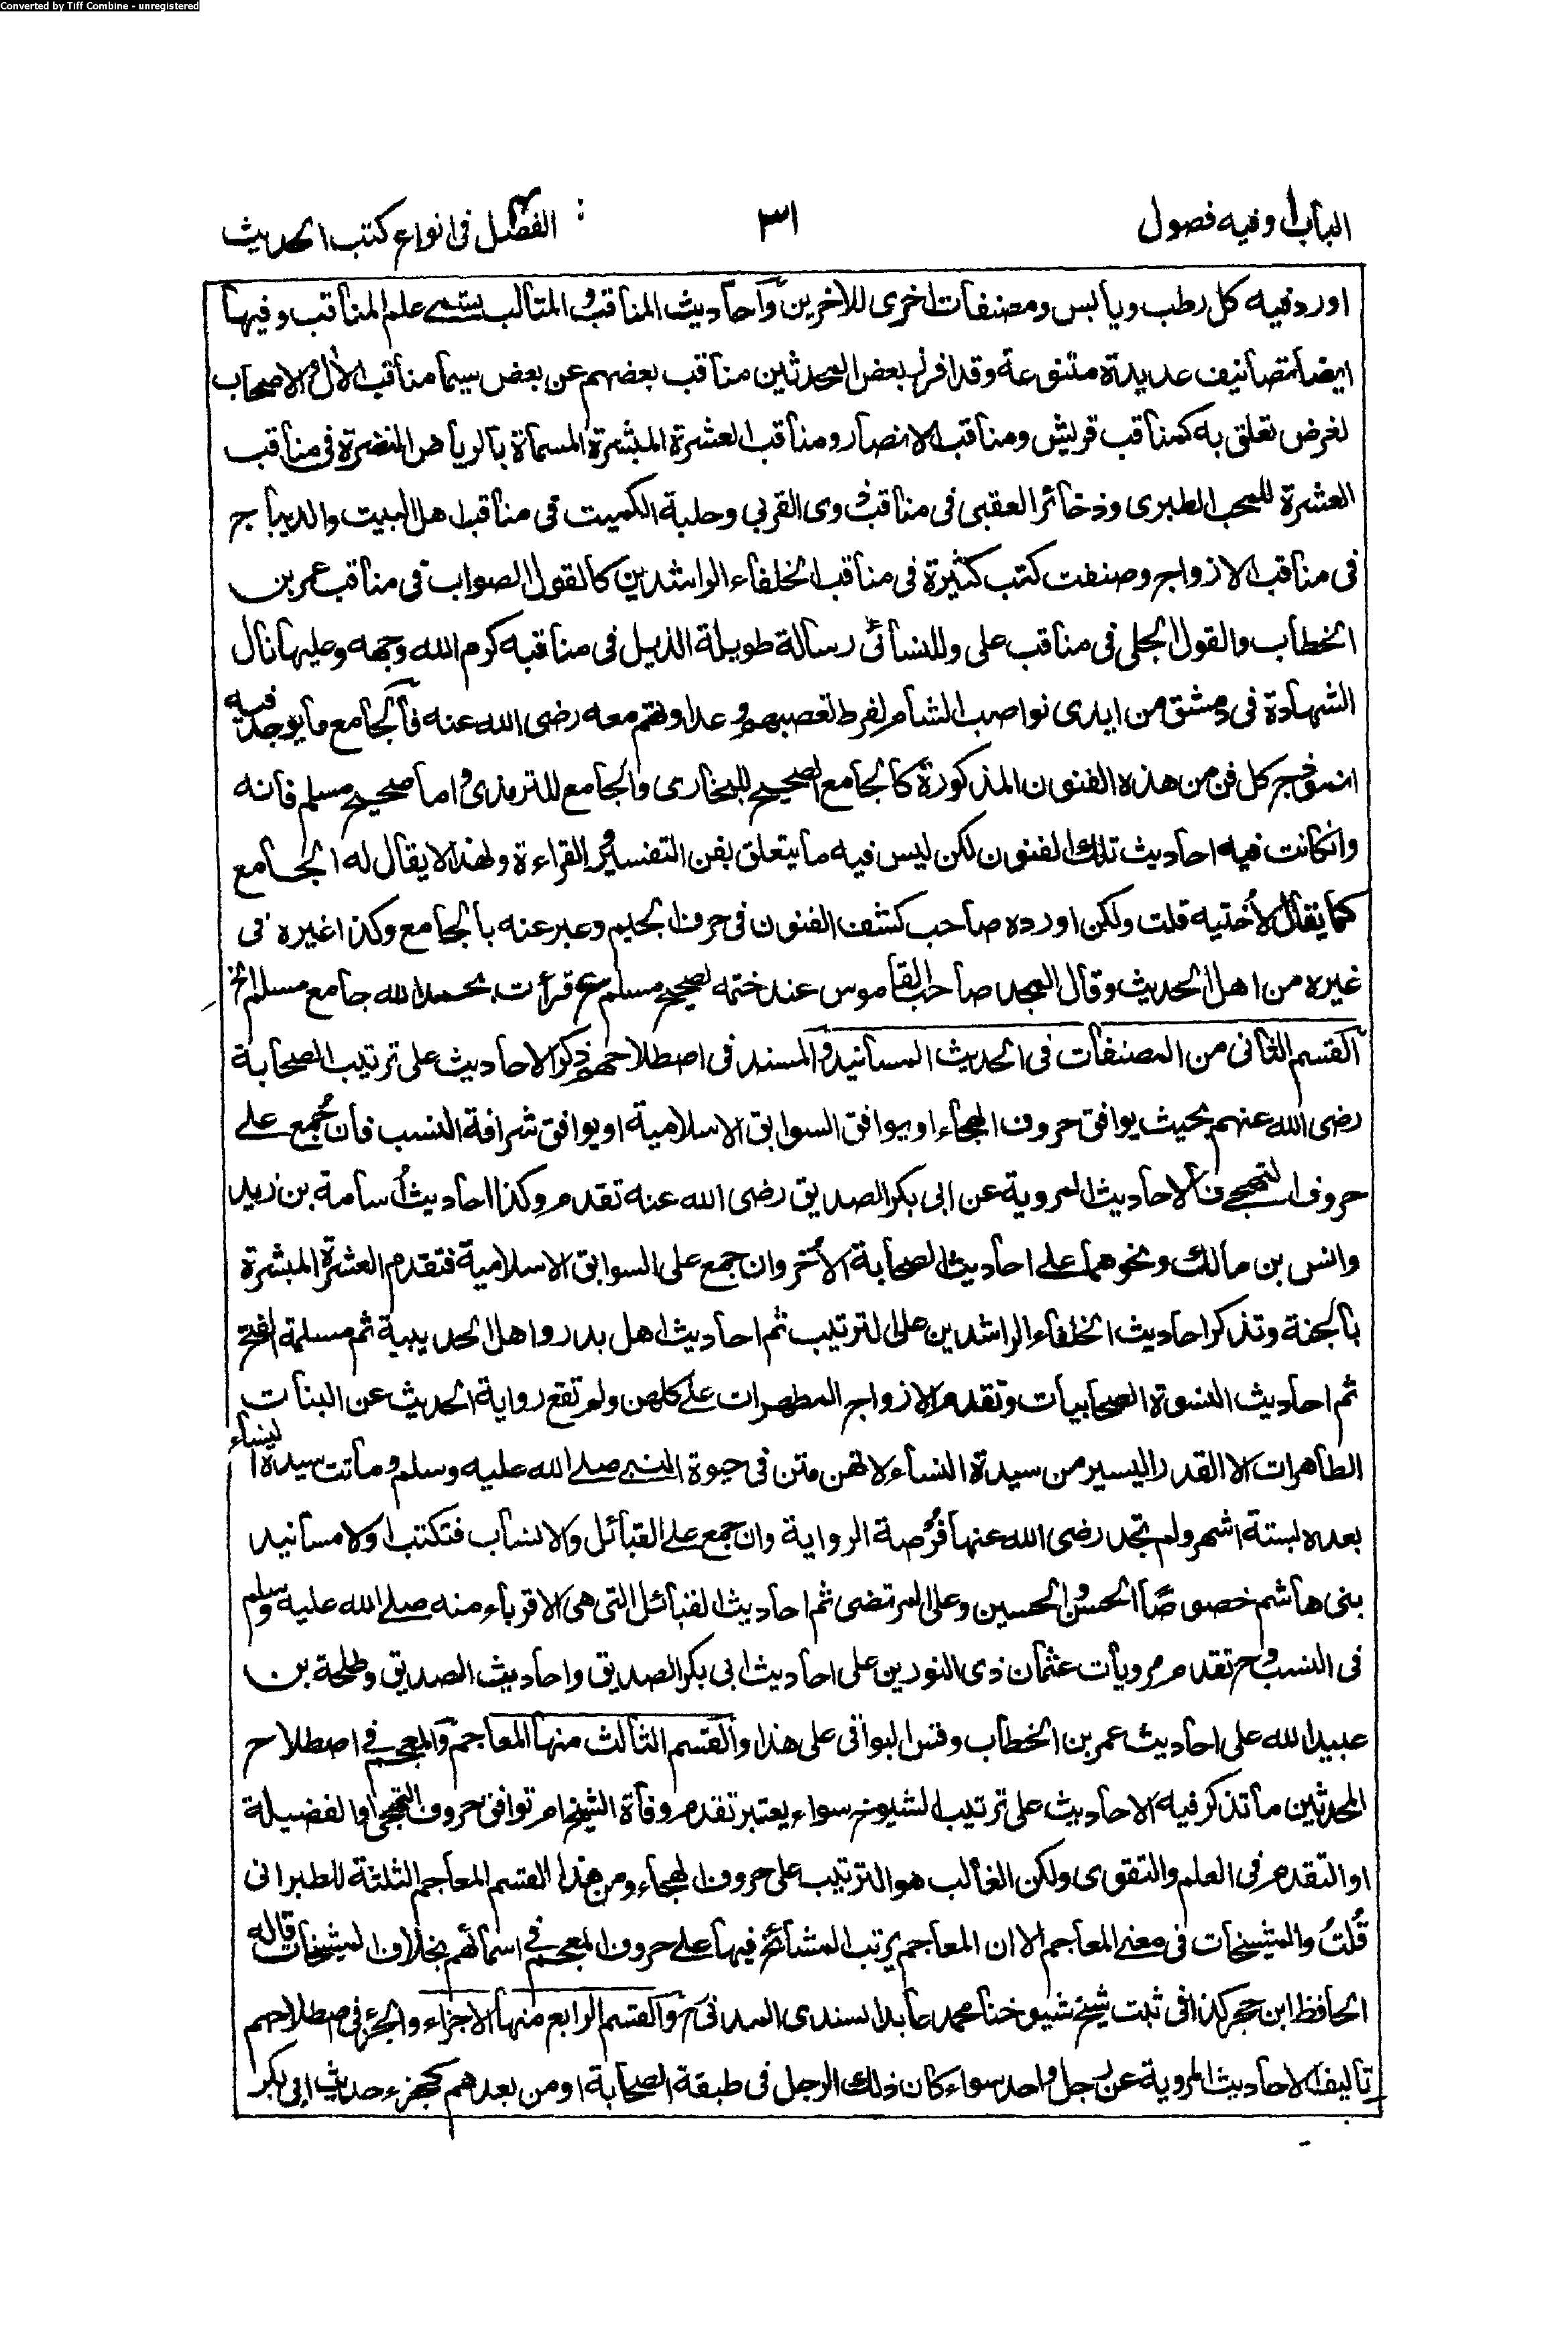 Converted by Tiff Combine - unregistered
الباب١ وفيه فصول ٣١ الفصل فى انواع كتب الحديث
اورد فيه كل رطب ويابس ومصنفات اخرى للاخرين واحاديث المناقب والمثالب يسمى علم المناقب وفيها
ايضا تصانيف عديدة متنوعة وقد افرد بعض المحدثين مناقب بعضهم عن بعض سيما مناقب الآل والاصحاب
لغرض تعلق به كمناقب قريش ومناقب الانصار ومناقب العشرة المبشرة المسماة بالرياض النضرة فى مناقب
العشرة للمحب الطبرى وذخائر العقبى فى مناقب ذوى القربى وحلية الكميت فى مناقب اهل البيت والديباج
فى مناقب الازواج وصنفت كتب كثيرة فى مناقب الخلفاء الراشدين كالقول الصواب فى مناقب عمر بن
الخطاب والقول الجلى فى مناقب على وللنسائى رسالة طويلة الذيل فى مناقبه كرم الله وجهه وعليها نال
الشهادة فى دمشق من ايدى نواصب الشام لفرط تعصبهم وعداوتهم معه رضى الله عنه فالجامع ما يوجد فيه
انموذج كل فن من هذه الفنون المذكورة كالجامع الصحيح للبخارى والجامع للترمذى واما صحيح مسلم فانه
وان كانت فيه احاديث تلك الفنون لكن ليس فيه ما يتعلق بفن التفسير والقراءة ولهذا لا يقال له الجامع
كما يقال لأختيه قلت ولكن اورده صاحب كشف الفنون فى حرف الجيم وعبر عنه بالجامع وكذا غيره فى
غيره من اهل الحديث وقال المجد صاحب القاموس عند ختمه لصحيح مسلم ع قرأت بحمد الله جامع مسلم الخ
القسم الثانى من المصنفات فى الحديث المسانيد والمسند فى اصطلاحهم ذكر الاحاديث على ترتيب الصحابة
رضى الله عنهم بحيث يوافق حروف الهجاء او يوافق السوابق الاسلامية او يوافق شرافة النسب فان جُمع على
حروف التهجى فالاحاديث المروية عن ابى بكر الصديق رضى الله عنه تقدم وكذا احاديث أسامة بن زيد
وانس بن مالك ونحوهما على احاديث الصحابة الأخر وان جمع على السوابق الاسلامية فتقدم العشرة المبشرة
بالجنة وتذكر احاديث الخلفاء الراشدين على الترتيب ثم احاديث اهل بدر واهل الحديبية ثم مسلمة الفتح
ثم احاديث النسوة الصحابيات وتقدم الازواج المطهرات على كلهن ولم تقع رواية الحديث عن البنات
الطاهرات الا القدر اليسير من سيدة النساء لانهن متن فى حيوة النبى صلى الله عليه وسلم وماتت سيدة النساء
بعده لستة اشهر ولم تجد رضى الله عنها فُرصة الرواية وان جمع على القبائل والانساب فتكتب اولا مسانيد
بنى هاشم خصوصًا الحسن والحسين وعلى المرتضى ثم احاديث القبائل التى هى الاقرباء منه صلى الله عليه وسلم
فى النسب وح تقدم مرويات عثمان ذى النورين على احاديث ابى بكر الصديق واحاديث الصديق وطلحة بن
عبيد الله على احاديث عمر بن الخطاب وقس البواقى على هذا والقسم الثالث منها المعاجم والمعجم فى اصطلاح
المحدثين ما تذكر فيه الاحاديث على ترتيب الشيوخ سواء يعتبر تقدم وفاة الشيخ ام توافق حروف التهجى او الفضيلة
او التقدم فى العلم والتقوى ولكن الغالب هو الترتيب على حروف الهجاء ومن هذا القسم المعاجم الثلثة للطبرانى
قُلتُ والمشيخات فى معنى المعاجم الا ان المعاجم يرتب المشائخ فيها على حروف المعجم فى اسمائهم بخلاف المشيخات قاله
الحافظ ابن حجر كذا فى ثبت شيخ شيوخنا محمد عابد السندى المدنى والقسم الرابع منها الاجزاء والجزء فى اصطلاحهم
تأليف الاحاديث المروية عن رجل واحد سواء كان ذلك الرجل فى طبقة الصحابة او من بعدهم كجزء حديث ابى بكر